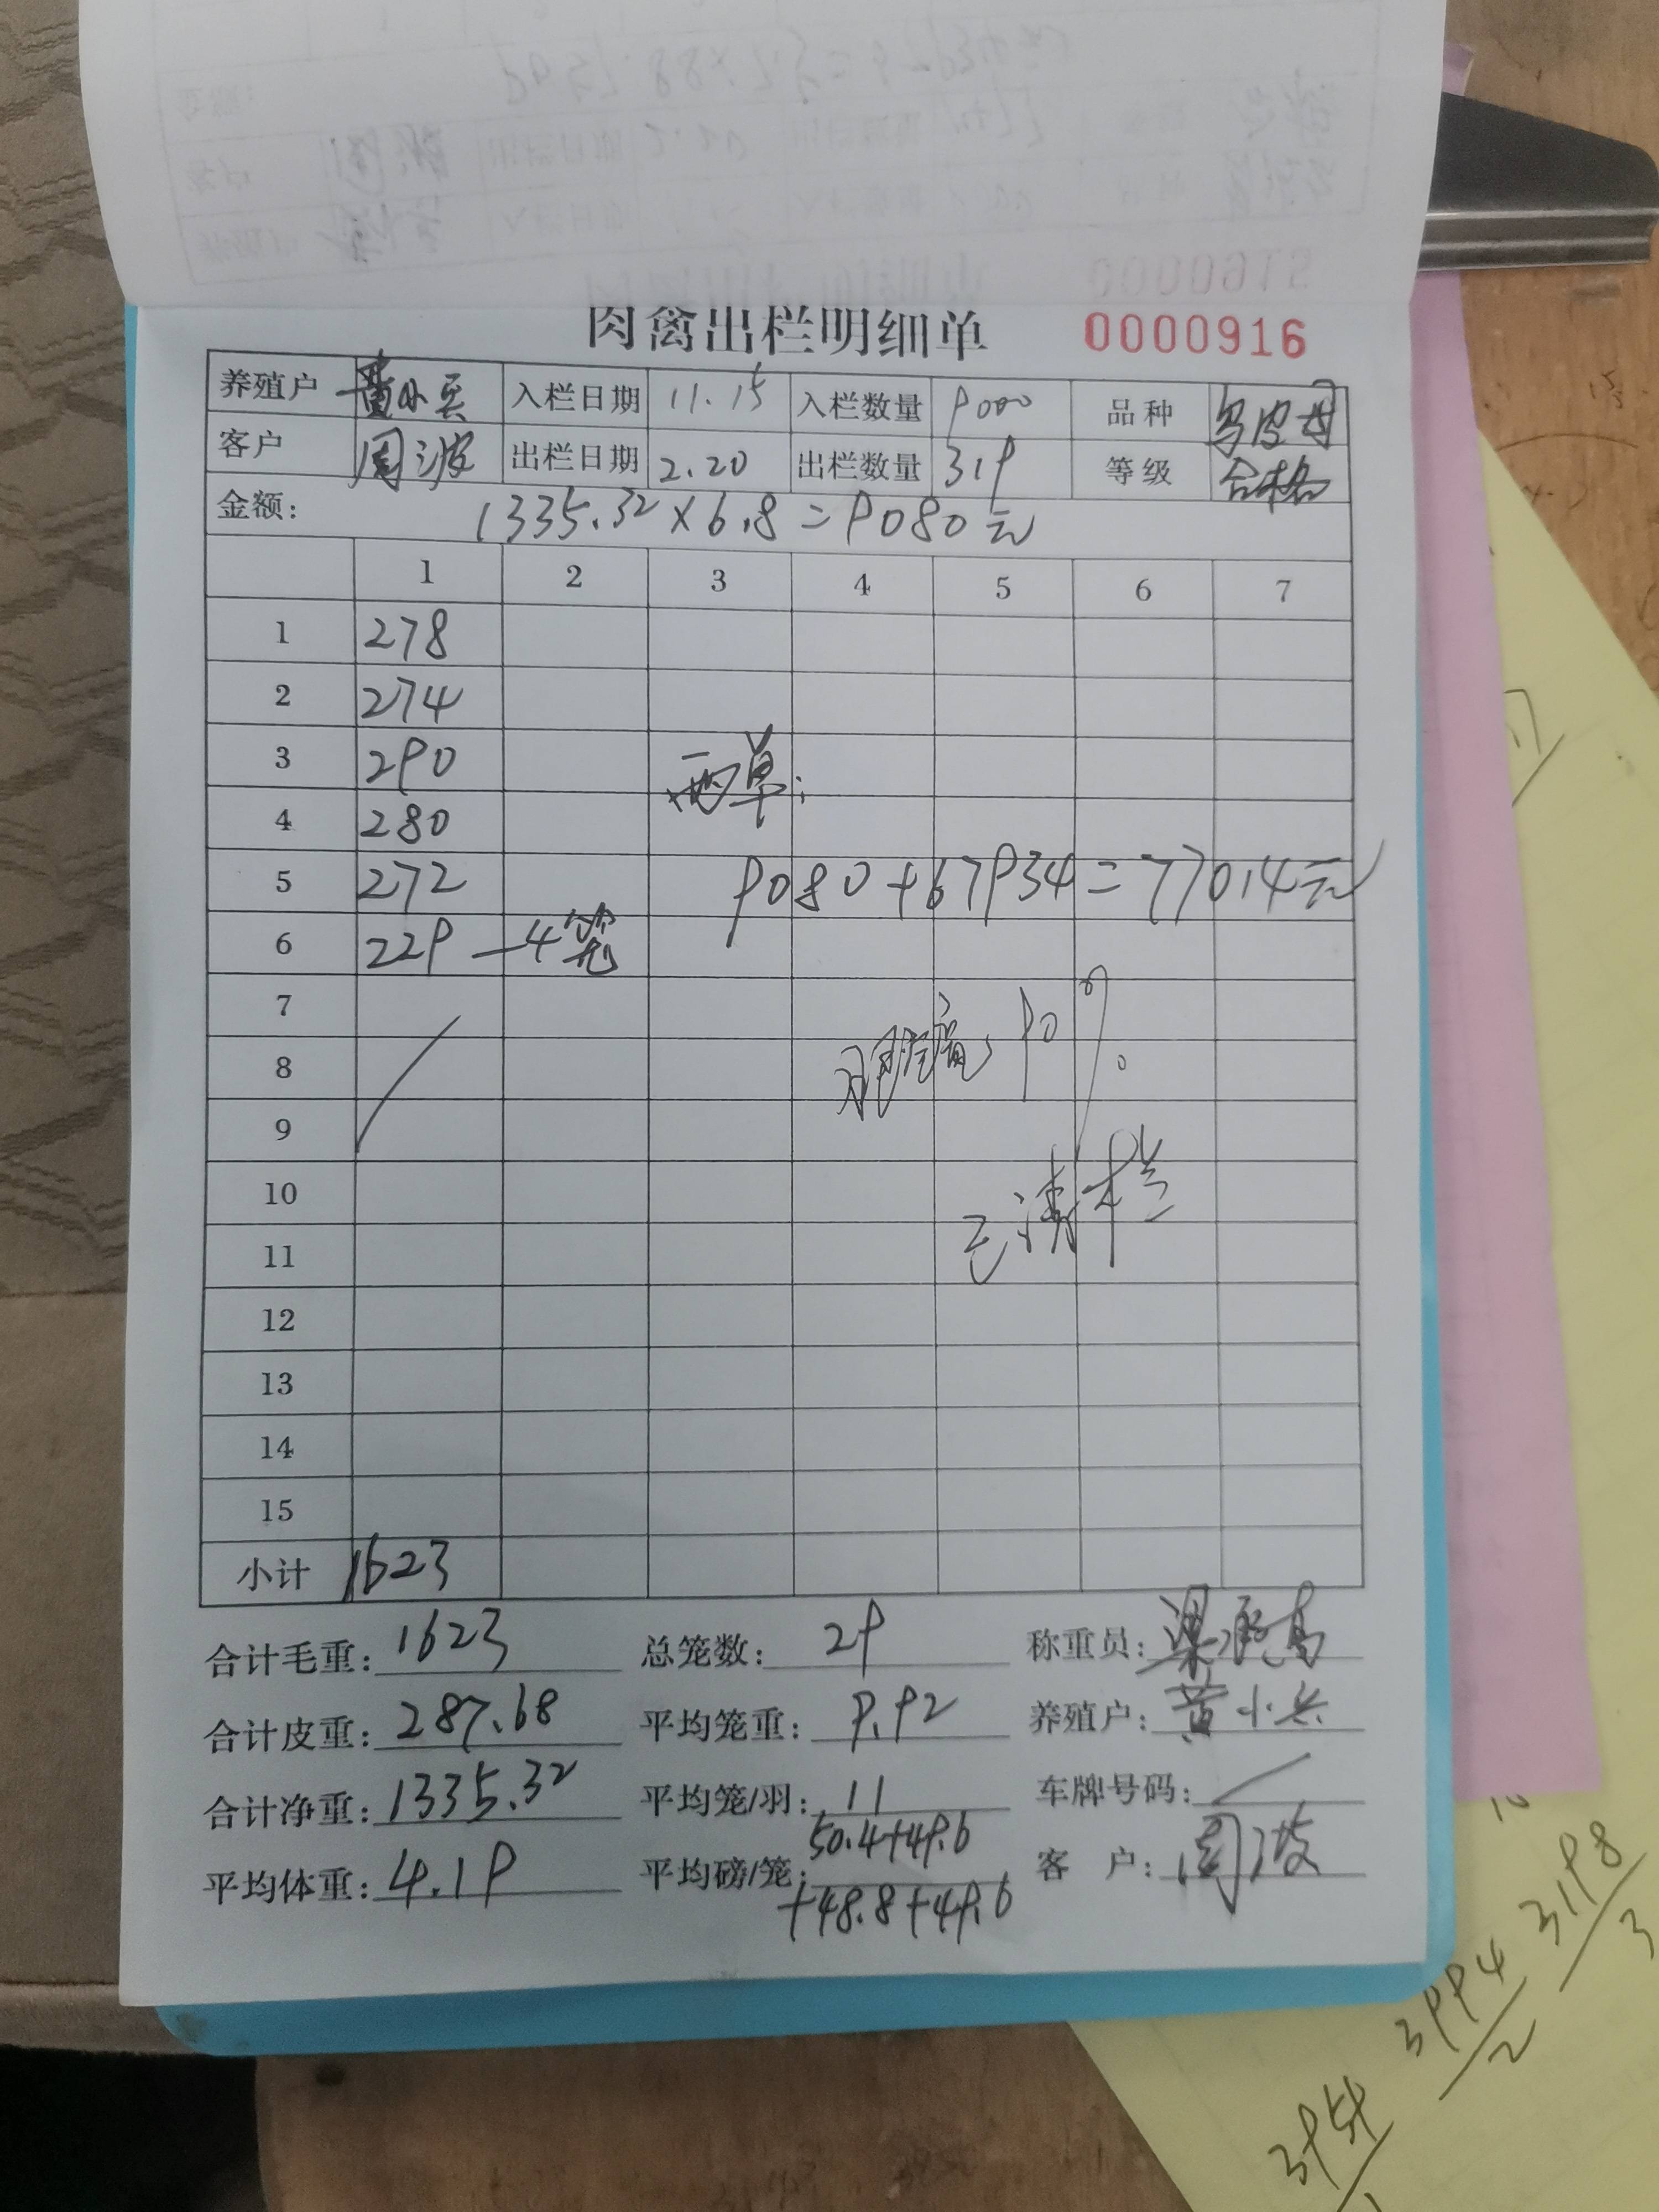 肉禽出栏明细单 0000916
养殖户 黄小兵 入栏日期 11.15 入栏数量 9000 品种 乌皮母
客户 周波 出栏日期 2.20 出栏数量 319 等级 合格
金额: 1335.32×6.8=9080元
1 2 3 4 5 6 7
1 278
2 274
3 290 两单:
4 280
5 272 9080+67934=77014元
6 229 —4笼
7
8 90%
9
10 已清栏
11
12
13
14
15
小计 1623
合计毛重: 1623 总笼数: 29 称重员: 梁
合计皮重: 287.68 平均笼重: 9.92 养殖户: 黄小兵
合计净重: 1335.32 平均笼/羽: 11 车牌号码:
平均体重: 4.19 平均磅/笼: 50.4+49.6 客 户: 周波
+48.8+49.6
3198
3
3994
2
3959